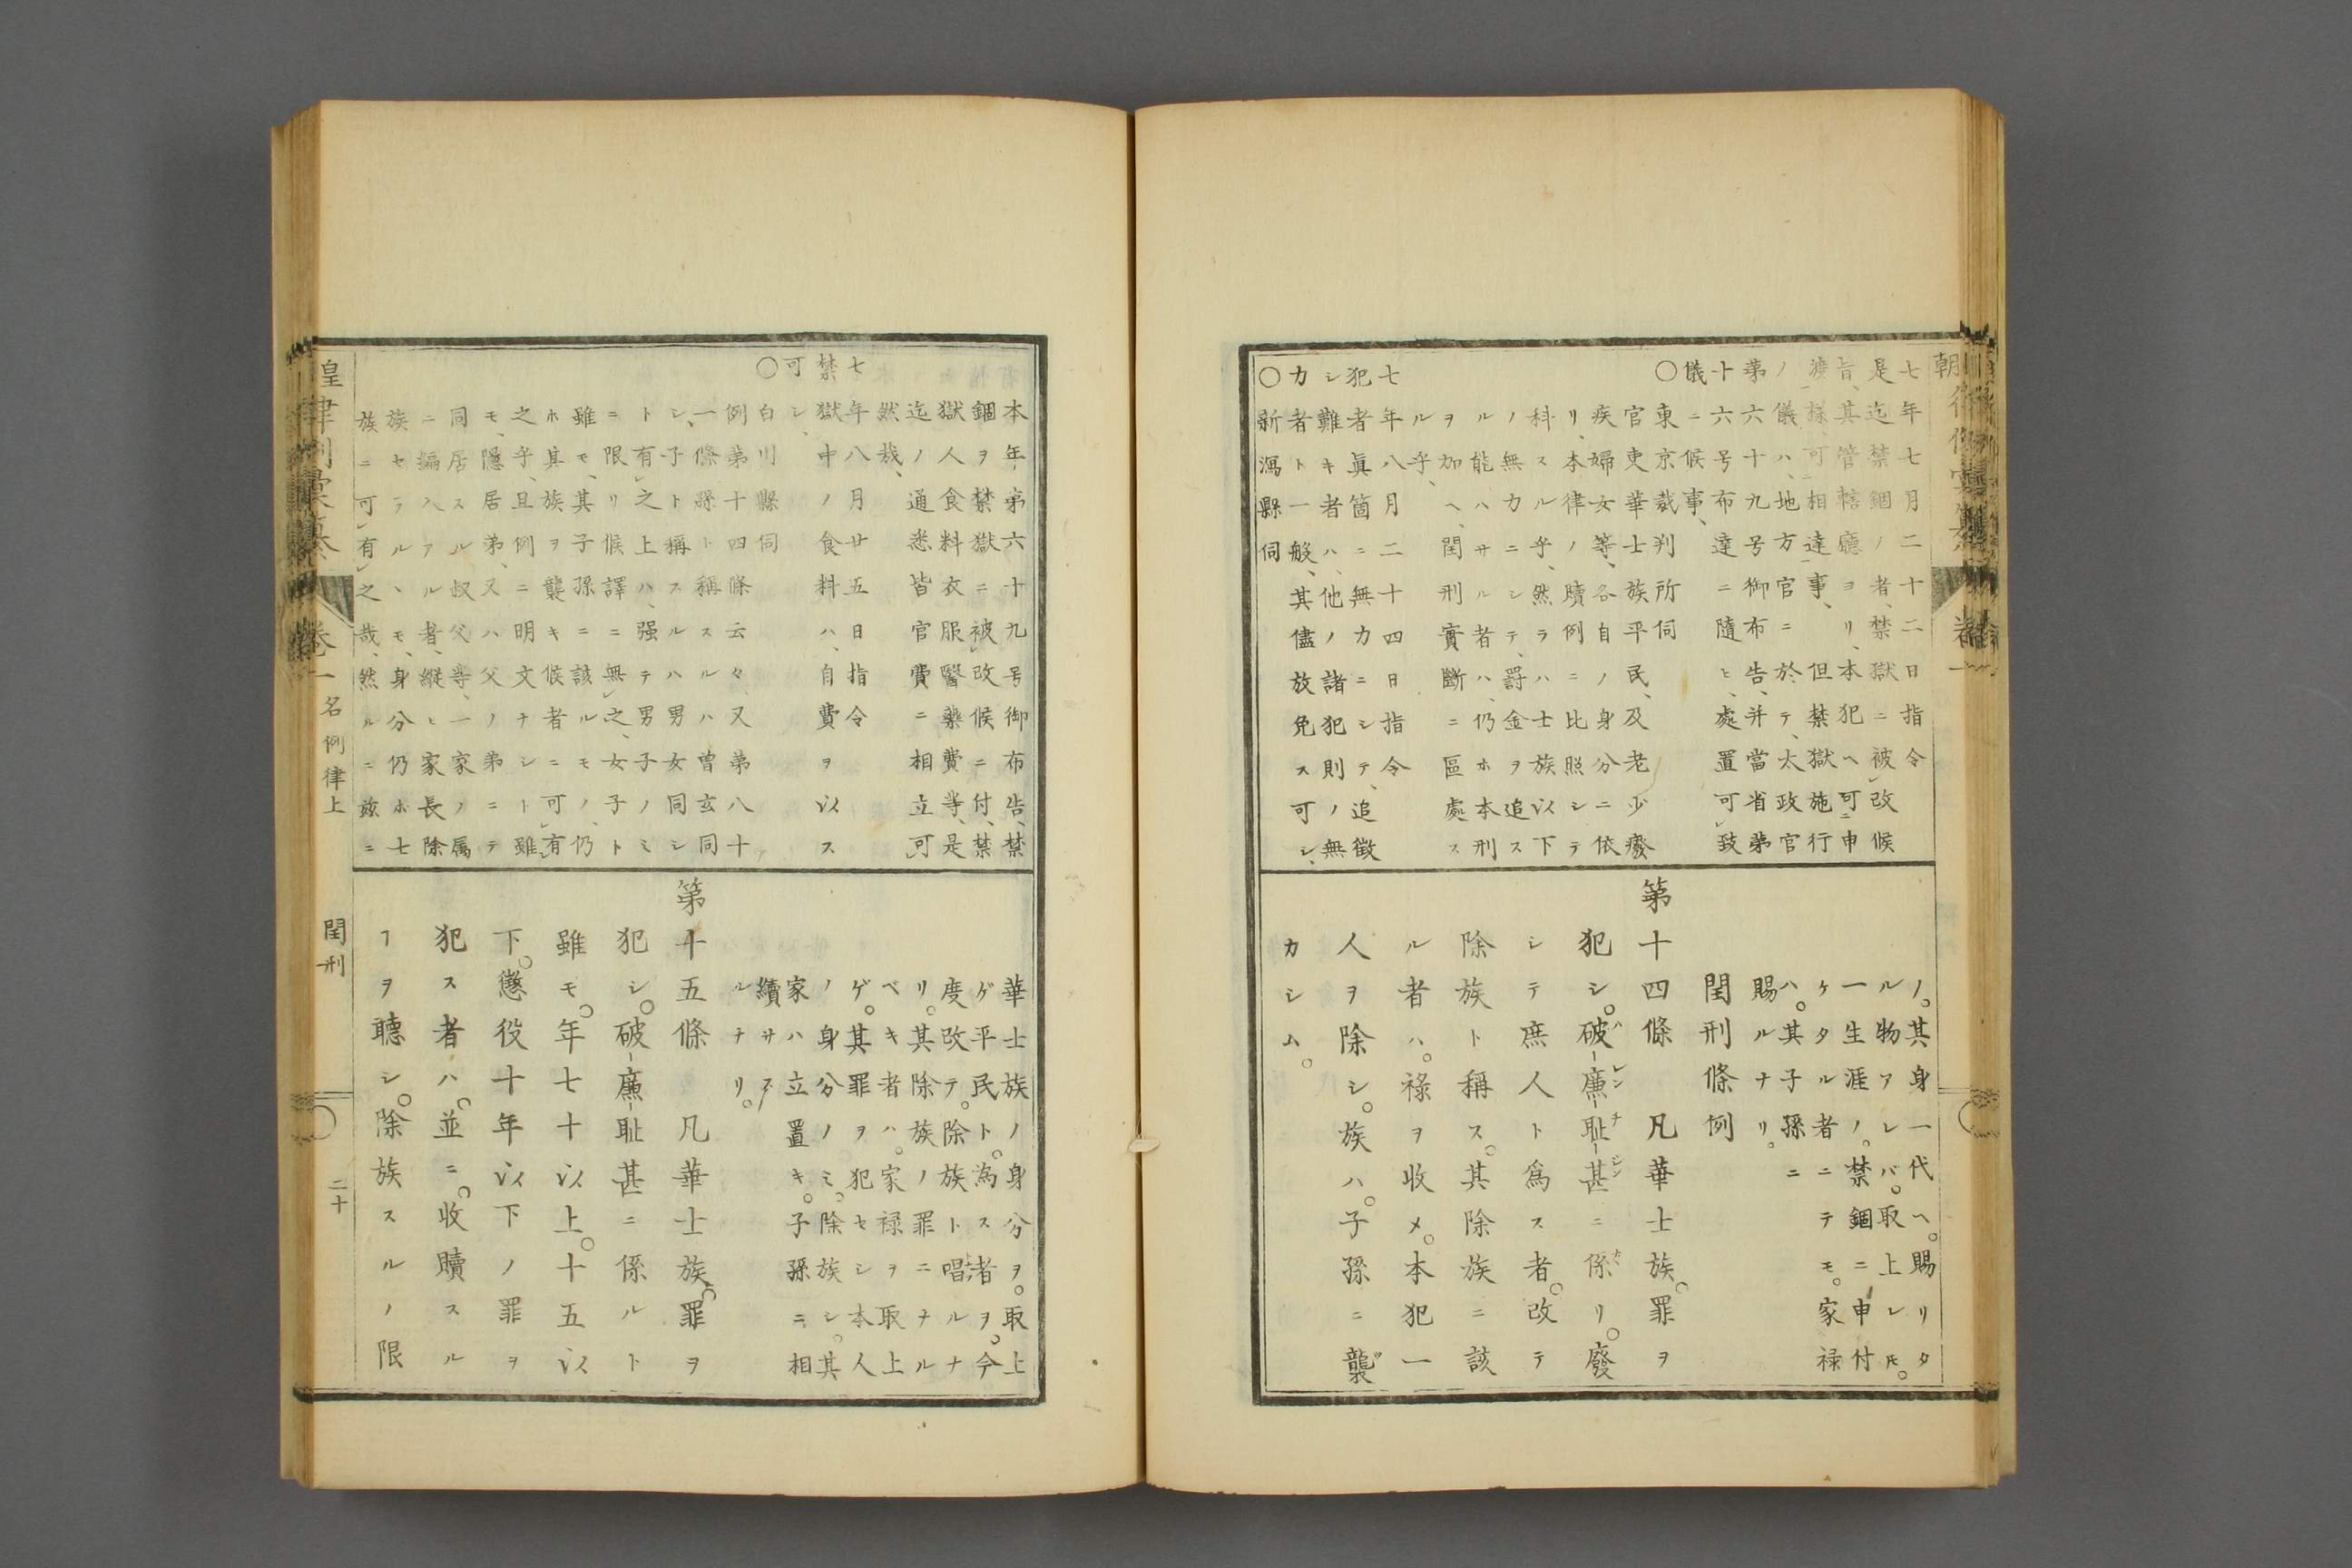 朝
七年七月二十二日指令
是迄禁錮ノ者、禁獄ニ被レ改候
旨、其管轄廳ヨリ、本犯ヘ可二申
渡一樣、可二相達一事、但禁獄施行
ノ儀ハ、地方官ニ於テ、太政官
第六十九号御布告、并當省第
十六号布達ニ隨ヒ、處置可レ致
儀ニ候事、
○東京裁判所伺
官吏華士族平民、及老少癈
疾婦女等、各自ノ身分ニ依
リ、本律ノ贖例ニ比照シテ
科スル乎、然ラハ士族以下
ノ無力ニシテ、罸金ヲ追ス
ル能ハサル者ハ、仍ホ本刑
ヲ加ヘ、閏刑實斷ニ區處ス
ル乎、
七年八月二十四日指令
犯者眞箇ニ無力ニシテ、追徴
シ難キ者ハ、他ノ諸犯則ノ無
力者ト一般、其儘放免ス可シ、
○新潟縣伺
ノ。其身一代ヘ。賜リタ
ル物アレバ。取上レ𪜈。
一生涯ノ。禁錮ニ申付
ケタル者ニテモ。家禄
ハ。其子孫ニ
賜ルナリ。
閏刑條例
第十四條 凡華士族。罪ヲ
犯シ。破廉耻甚ニ係リ。廢
シテ庶人ト爲ス者。改テ
除族ト稱ス。其除族ニ該
ル者ハ。禄ヲ收メ。本犯一
人ヲ除シ。族ハ。子孫ニ襲
カシム。
本年第六十九号御布告、禁
錮ヲ禁獄ニ被レ改候ニ付、禁
獄人食料衣服醫藥費等、是
迄ノ通悉皆官費ニ相立可レ
然哉、
七年八月廿五日指令
禁獄中ノ食料ハ、自費ヲ以ス
可シ、
○白川縣伺
例第十四條云々、又第八十
一條孫ト稱スルハ、曽玄同
シ、子ト稱スルハ男女同シ
ト有レ之上ハ、强テ男子ノミ
ニ限リ候譯ニ無レ之、女子ト
雖モ、其子孫ニ該ルモノ、仍
ホ其族ヲ襲キ候者ニ可レ有レ
之乎、且例ニ明文ナシト雖
モ、隱居弟、又ハ父ノ弟ニテ
同居スル叔父等、一家ノ属
ニ編入アル者、縱ヒ家長除
族セラルヽモ、身分仍ホ七
族ニ可レ有レ之哉、然ルニ玆ニ
華士族ノ身分ヲ。取上
ゲ平民ト。為ス者ヲ。今
度改テ。除族ト唱ルナ
リ。其除族ノ罪ニナル
ベキ者ハ。家禄ヲ取上
ゲ。其罪ヲ犯セシ本人
ノ身分ノミ。除族シ。其
家ハ立置キ。子孫ニ相
續サス
ルナリ。
第十五條 凡華士族。罪ヲ
犯シ。破廉耻甚ニ係ルト
雖モ。年七十以上。十五以
下。懲役十年以下ノ罪ヲ
犯ス者ハ。並ニ。收贖スル
ヿヲ聽シ。除族スルノ限
皇律例彙纂 卷一 名例律上 閏刑 二十